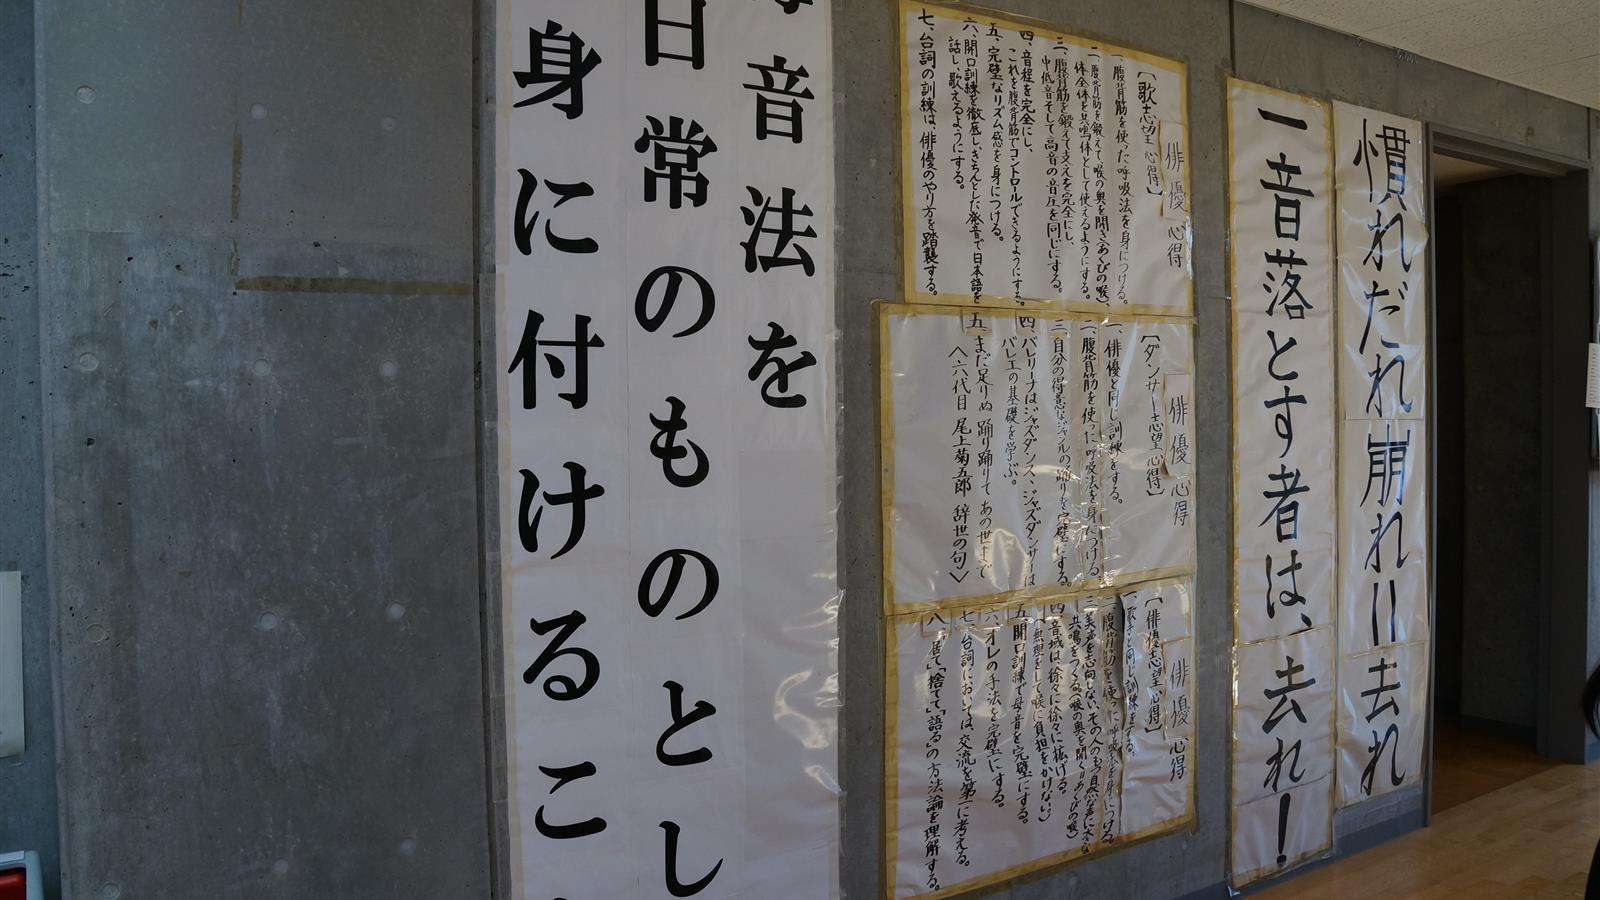 慣れだれ崩れ=去れ
一音落とす者は、去れ!
俳優心得
[歌志望心得]
一、腹背筋を使った呼吸法を身につける。
二、腹背筋を鍛えて、喉の奥を開き(あくびの喉)、
体全体を共鳴体として使えるようにする。
三、腹背筋を鍛えて支えを完全にし、
中低音そして高音の音圧を同じにする。
四、音程を完全にし、
これを腹背筋でコントロールできるようにする。
五、完璧なリズム感を身につける。
六、開口訓練を徹底し、きちんとした発音で日本語を
話し、歌えるようにする。
七、台詞の訓練は、俳優のやり方を踏襲する。
俳優心得
[ダンサー志望心得]
一、俳優と同じ訓練をする。
二、腹背筋を使った呼吸法を身につける
三、自分の得意なジャンルの踊りを完璧にする。
四、バレリーナはジャズダンス、ジャズダンサーは
バレエの基礎を学ぶ。
五、まだ足りぬ 踊り踊りて あの世まで
〈六代目 尾上菊五郎 辞世の句〉
俳優心得
[俳優志望心得]
一、歌手と同じ訓練をする。
二、腹背筋を使った呼吸法を身につける。
三、美声を志向しない、その人のもつ自然な声に大きな
共鳴をつくる(喉の奥を開く=あくびの喉)
四、音域は、徐々に徐々に拡げる。
(無理をして喉に負担をかけない)
五、開口訓練で母音を完璧にする。
六、オレの手法を完璧にする。
七、台詞においては、交流を第一に考える。
八、「居て」「捨てて」「語る」の方法論を理解する。
音法を
日常のものとし
身に付けるこ